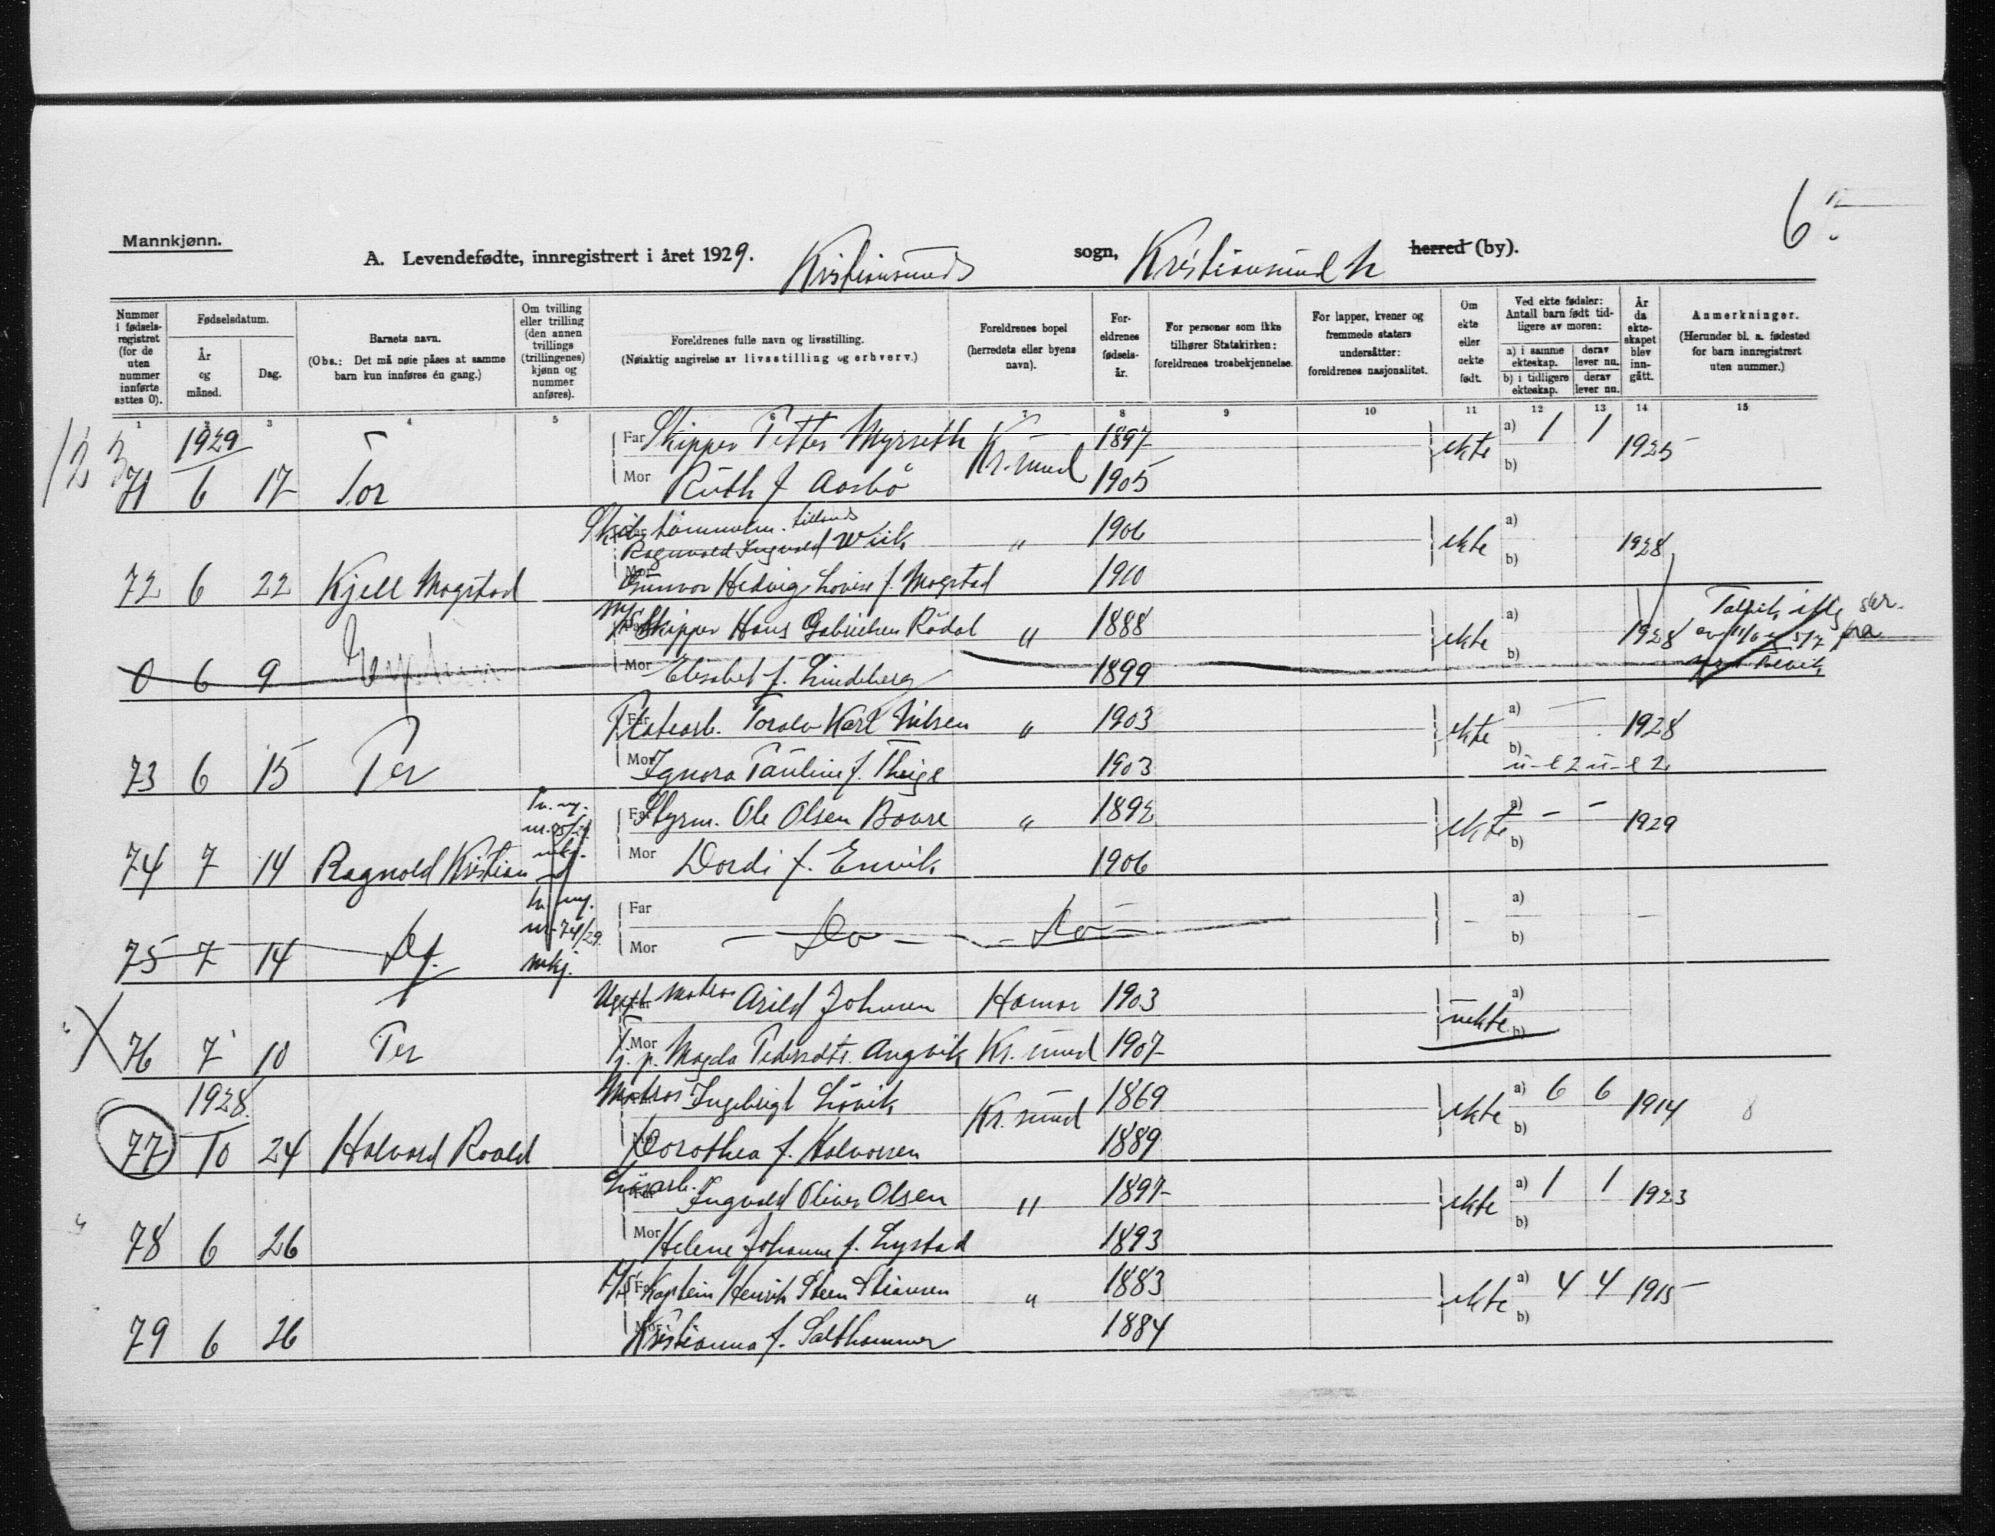 6
Mannkjønn.
A. Levendefødte, innregistrert i året 1929. Kristiansunds sogn, Kristiansund N herred (by).
Nummer i fødselsregistret (for de uten nummer innførte settes 0).
Fødselsdatum.
År og måned.
Dag.
Barnets navn.
(Obs.: Det må nøie påses at samme barn kun innføres én gang.)
Om tvilling eller trilling (den annen tvillings (trillingenes) kjønn og nummer anføres).
Foreldrenes fulle navn og livsstilling.
(Nøiaktig angivelse av livsstilling og erhverv.)
Foreldrenes bopel (herredets eller byens navn).
Foreldrenes fødselsår.
For personer som ikke tilhører Statskirken: foreldrenes trosbekjennelse.
For lapper, kvener og fremmede staters undersåtter: foreldrenes nasjonalitet.
Om ekte eller uekte født.
Ved ekte fødsler: Antall barn født tidligere av moren:
a) i samme ekteskap. derav lever nu.
b) i tidligere ekteskap. derav lever nu.
År da ekteskapet blev inngått.
Anmerkninger.
(Herunder bl. a. fødested for barn innregistrert uten nummer.)
1 2 3 4 5 6 7 8 9 10 11 12 13 14 15
123
1929 Far Skipper Petter Myrseth Kr.sund 1897 ekte a) 1 1 1925
71 6 17 Tor Mor Ruth f. Aasbø 1905 b)
Ragnvald Ingvald Wiik " 1906 ekte a) 1928
72 6 22 Kjell Mogstad Mor Gunvor Hedvig Lovise f. Mogstad 1910 b)
M/S Skipper Hans Gabrielsen Rødal " 1888 ekte a) 1928
0 6 9 Mor Elisabet f. Lindeberg 1899 b)
Far Toralv Karl Nilsen " 1903 ekte a) — 1928
73 6 15 Per Mor Pauline f. 1903 b) u-e 2 u-e 2
Far Styrm. Ole Olsen Bovre " 1892 ekte a) — — 1929
74 7 14 Ragnvold Kristian Mor Dordi f. Envik 1906 b)
Far a)
75 7 14 Df. nr. 74/29 mkj. Mor — Do — — Do — b)
Matros Arild Johnsen Hamar 1903 uekte a)
76 7 10 Per Mor Magda Pedersdtr. Angvik Kr. sund 1907 b)
1928 Matros Ingebrigt Løvik Kr. sund 1869 ekte a) 6 6 1914 8
77 10 24 Halvard Roald Mor Dorothea f. Halvorsen 1889 b)
Løsarb. Far Ingvald Oliver Olsen " 1897 ekte a) 1 1 1923
78 6 26 Mor Helene Johanne f. Lystad 1893 b)
M/S Far Kaptein Henrik Steen Stiansen " 1883 ekte a) 4 4 1915
79 6 26 Mor Kristianna f. Salthammer 1884 b)